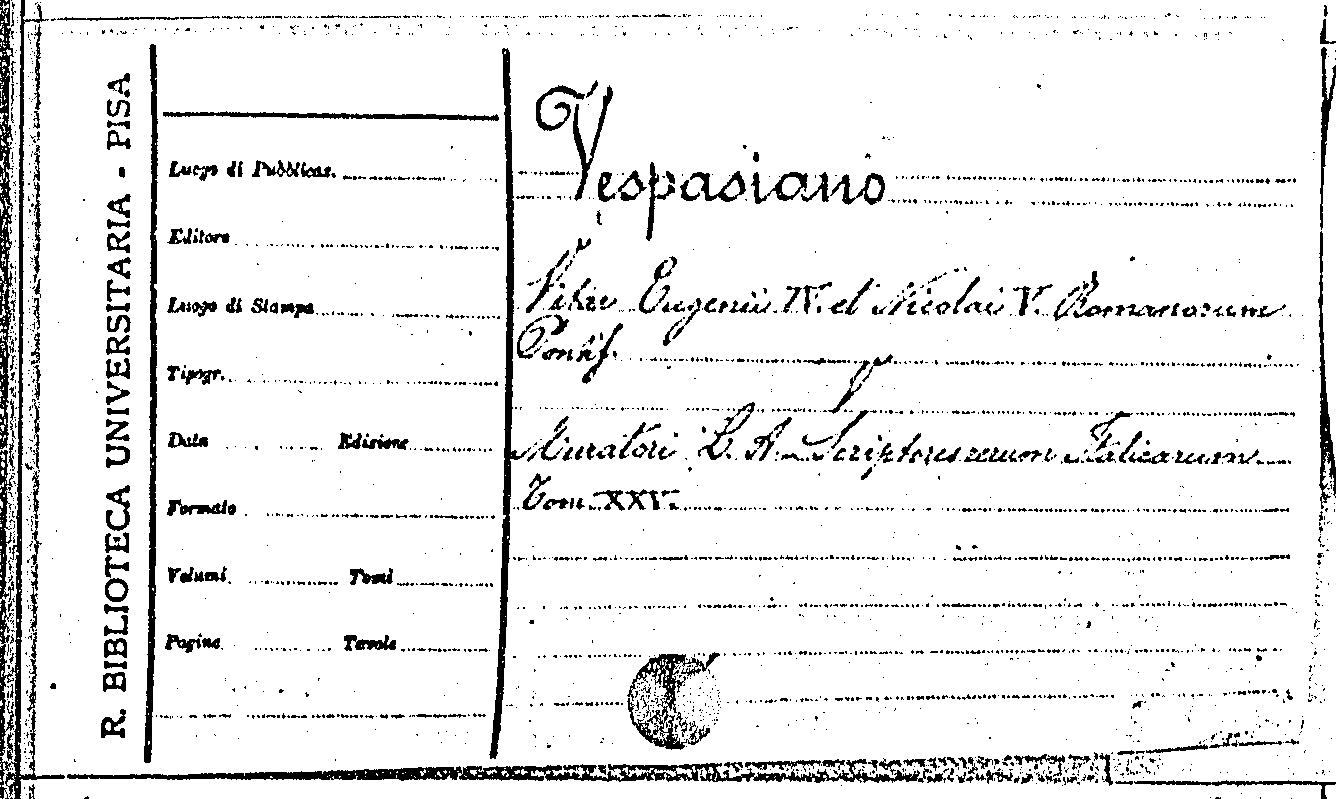 R. BIBLIOTECA UNIVERSITARIA - PISA
Luogo di Pubblicaz.
Editore
Luogo di Stampa
Tipogr.
Data Edizione
Formato
Volumi Tomi
Pagine Tavole
Vespasiano
Vitae Eugenii IV. et Nicolai V. Romanorum
Pontif.
V
Muratori L. A. Scriptores rerum Italicarum
Tom. XXV.